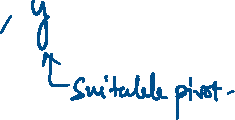 , y
suitable pivot.